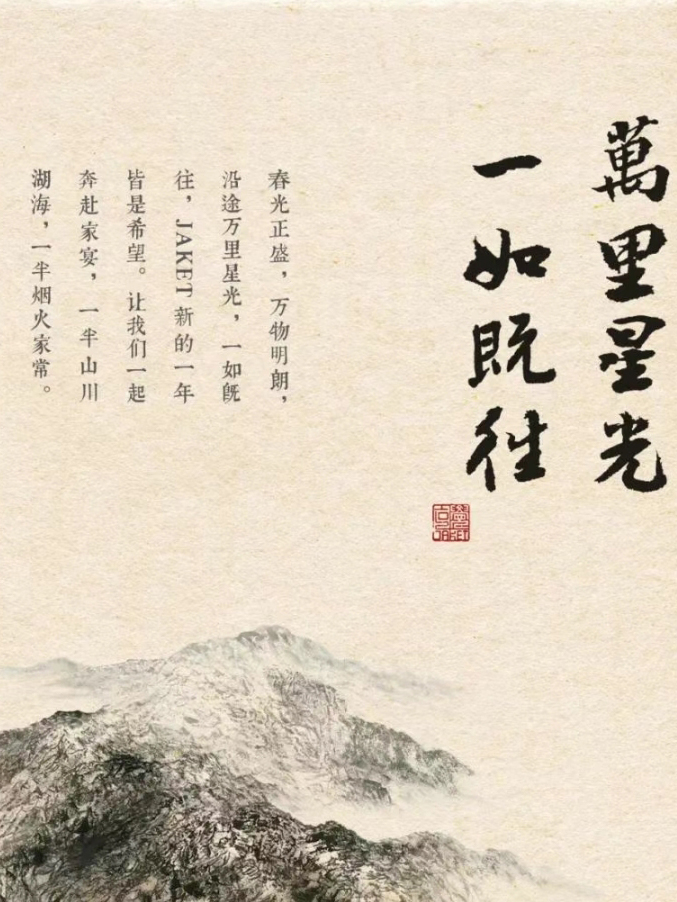 萬里星光
一如既往
春光正盛，万物明朗，
沿途万里星光，一如既
往，JAKET 新的一年
皆是希望。让我们一起
奔赴家宴，一半山川
湖海，一半烟火家常。